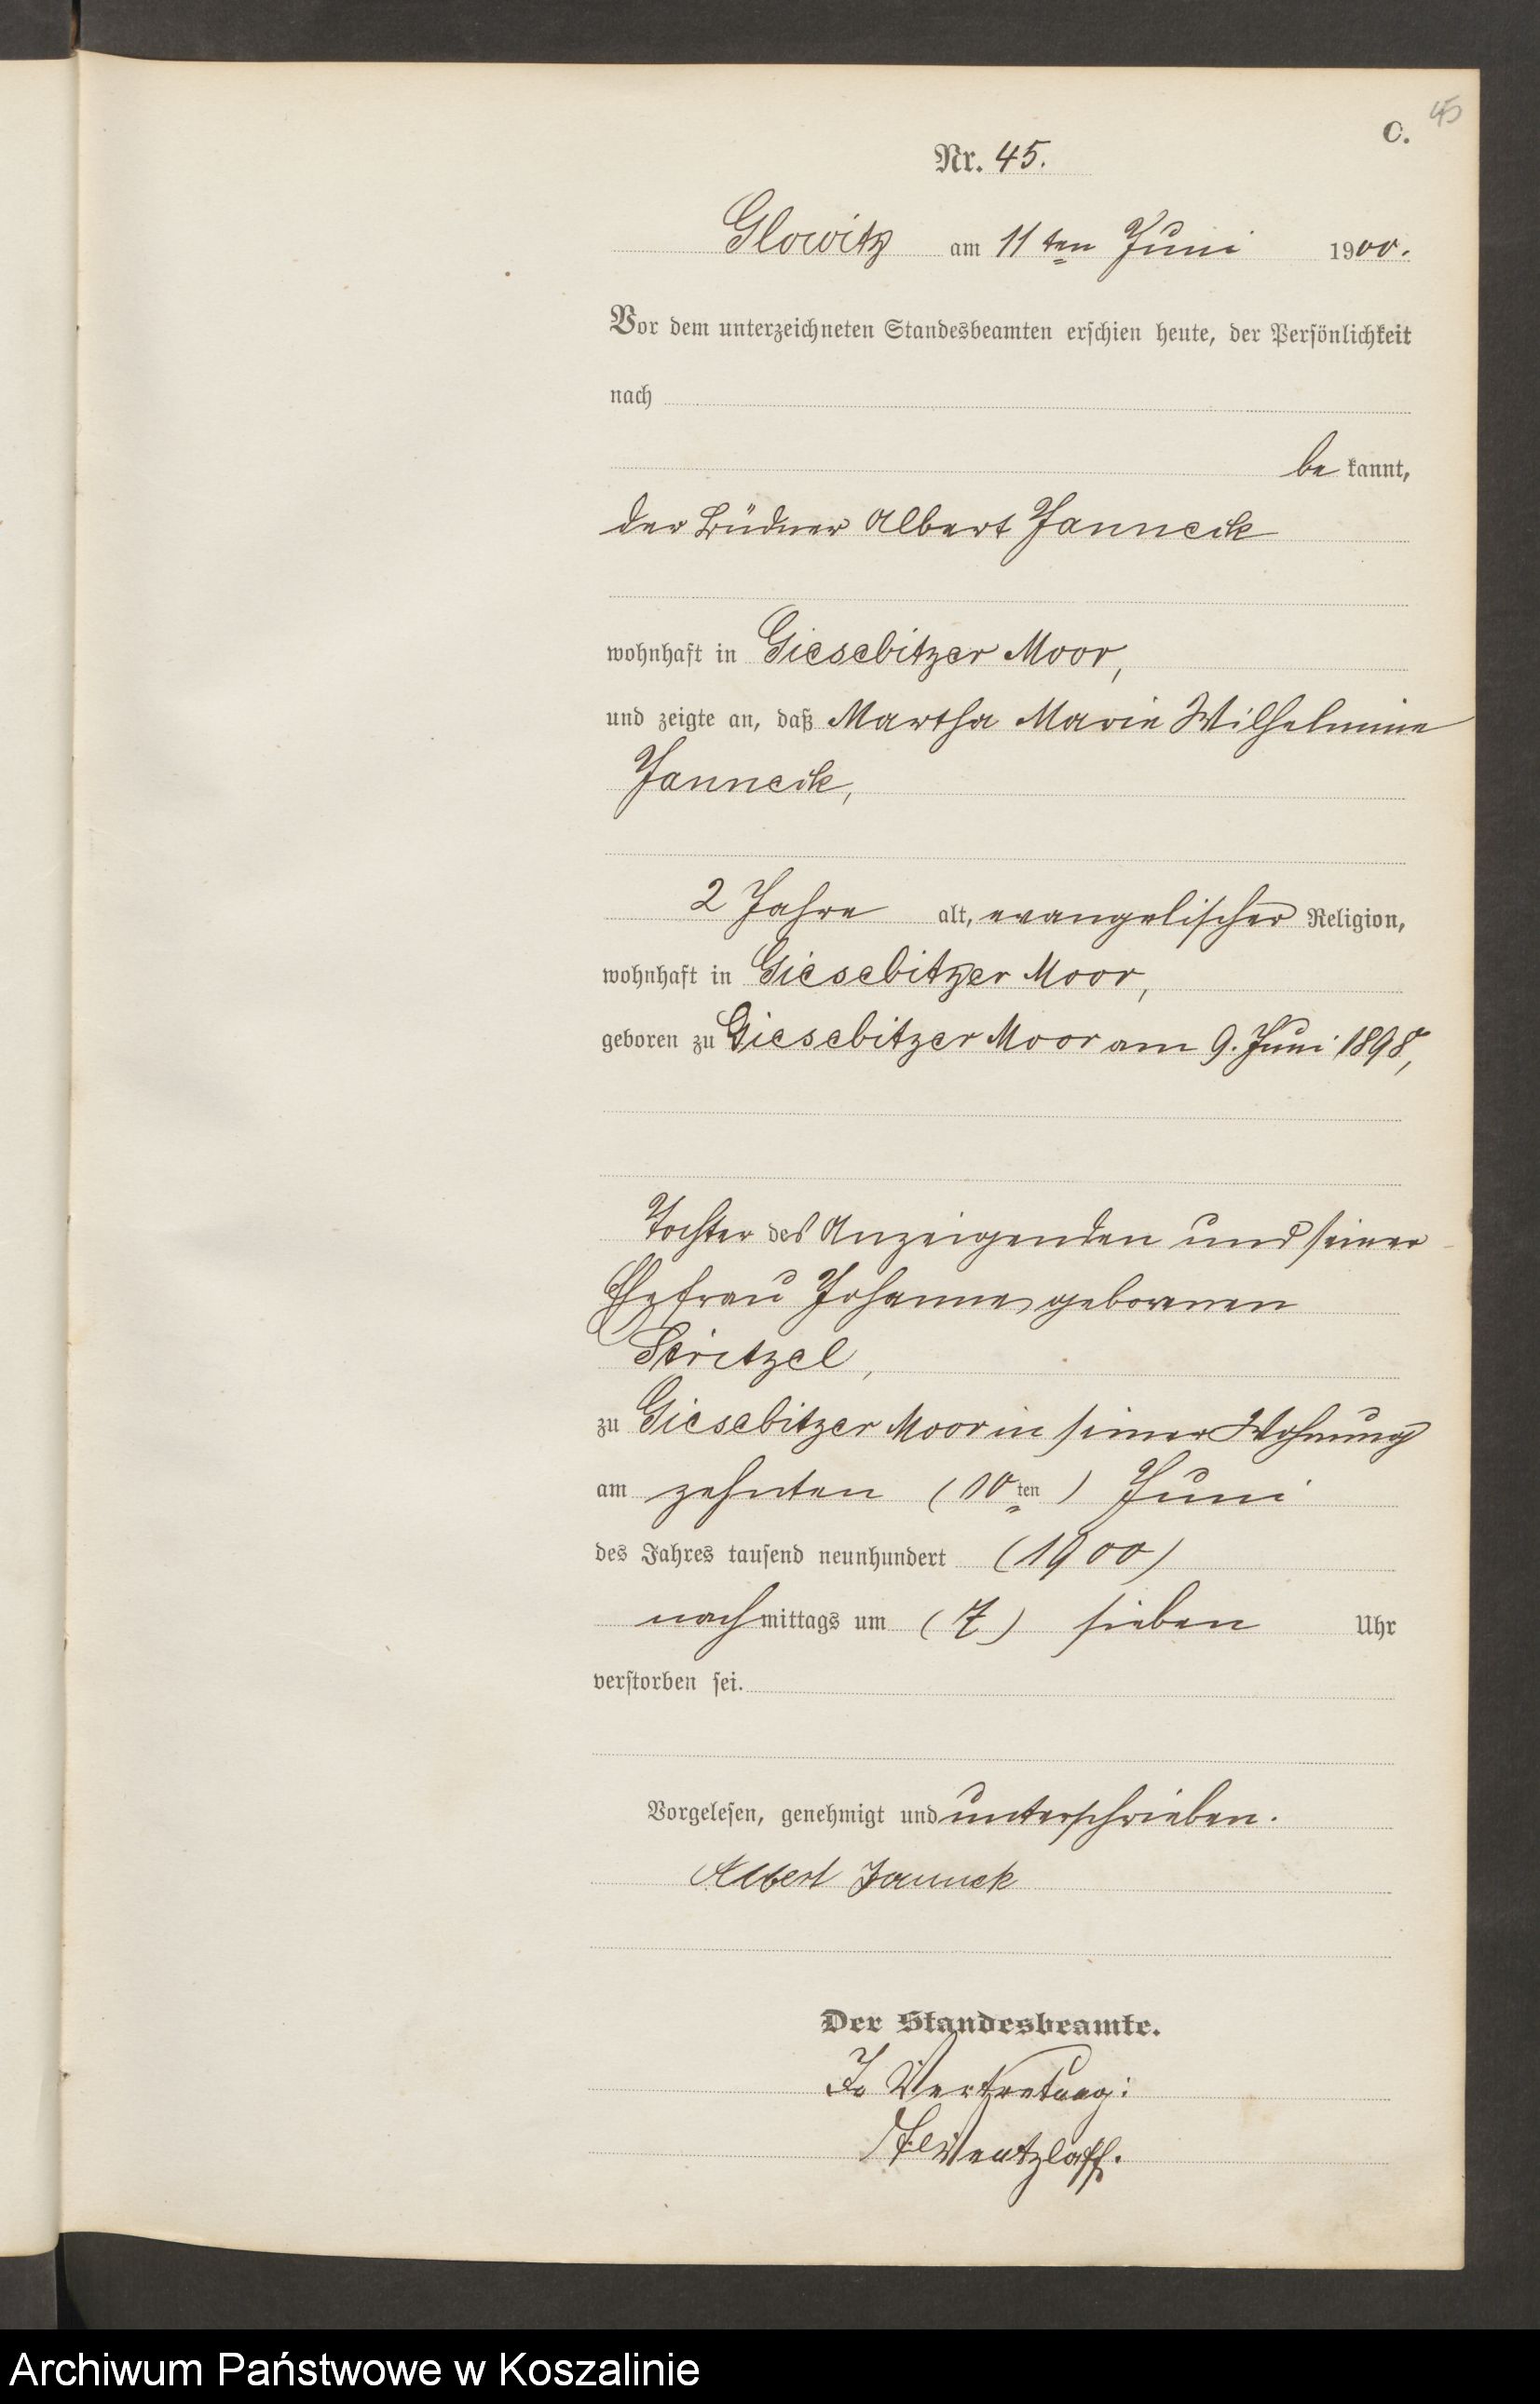 45
C.
Nr. 45.
Glowitz am 11ten Juni 1900.
Vor dem unterzeichneten Standesbeamten erschien heute, der Persönlichkeit
nach
be kannt,
der Büdner Albert Janneck
wohnhaft in Giesebitzer Moor,
und zeigte an, daß Martha Marie Wilhelmine
Janneck,
2 Jahre alt, evangelischer Religion,
wohnhaft in Giesebitzer Moor,
geboren zu Giesebitzer Moor am 9. Juni 1898,
Tochter des Anzeigenden und seiner
Ehefrau Johanne gebornen
zu Giesebitzer Moor in seiner Wohnung
am zehnten (10ten) Juni
des Jahres tausend neunhundert (1900)
nachmittags um (7) sieben Uhr
verstorben sei.
Vorgelesen, genehmigt und unterschrieben.
Albert Janneck
Der Standesbeamte.
In Vertretung:
Wentzlaff.
Archiwum Państwowe w Koszalinie